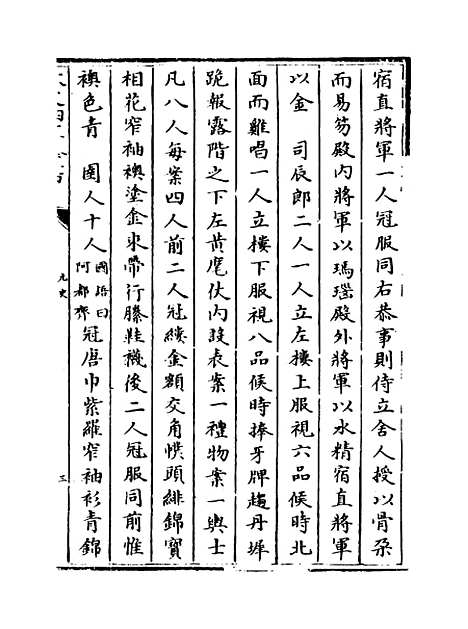 宿直將軍一人冠服同右恭事則侍立舍人授以骨朶
而易笏殿内將軍以瑪瑙殿外將軍以水精宿直將軍
以金　司辰郎二人一人立左樓上服視六品候時北
面而雞唱一人立樓下服視八品候時捧牙牌趨丹墀
跪報露階之下左黄麾仗内設表案一禮物案一輿士
凡八人每案四人前二人冠縷金額交角幞頭緋錦寳
相花窄袖襖塗金束帶行縢鞋襪後二人冠服同前惟
襖色青　圉人十人國語曰阿都齊冠唐巾紫羅窄袖衫青錦
元史
三